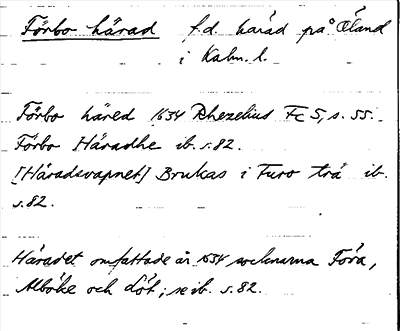 Förbo härad f.d. härad på Öland
i Kalm. l.
Förbo häred 1634 Rhezelius Fc 5, s. 55.
Förbo Häradhe ib. s. 82.
[Häradsvapnet] Brukas i Furo trä ib.
s. 82.
Häradet omfattade år 1634 socknarna Föra,
Alböke och Löt; se ib. s. 82.